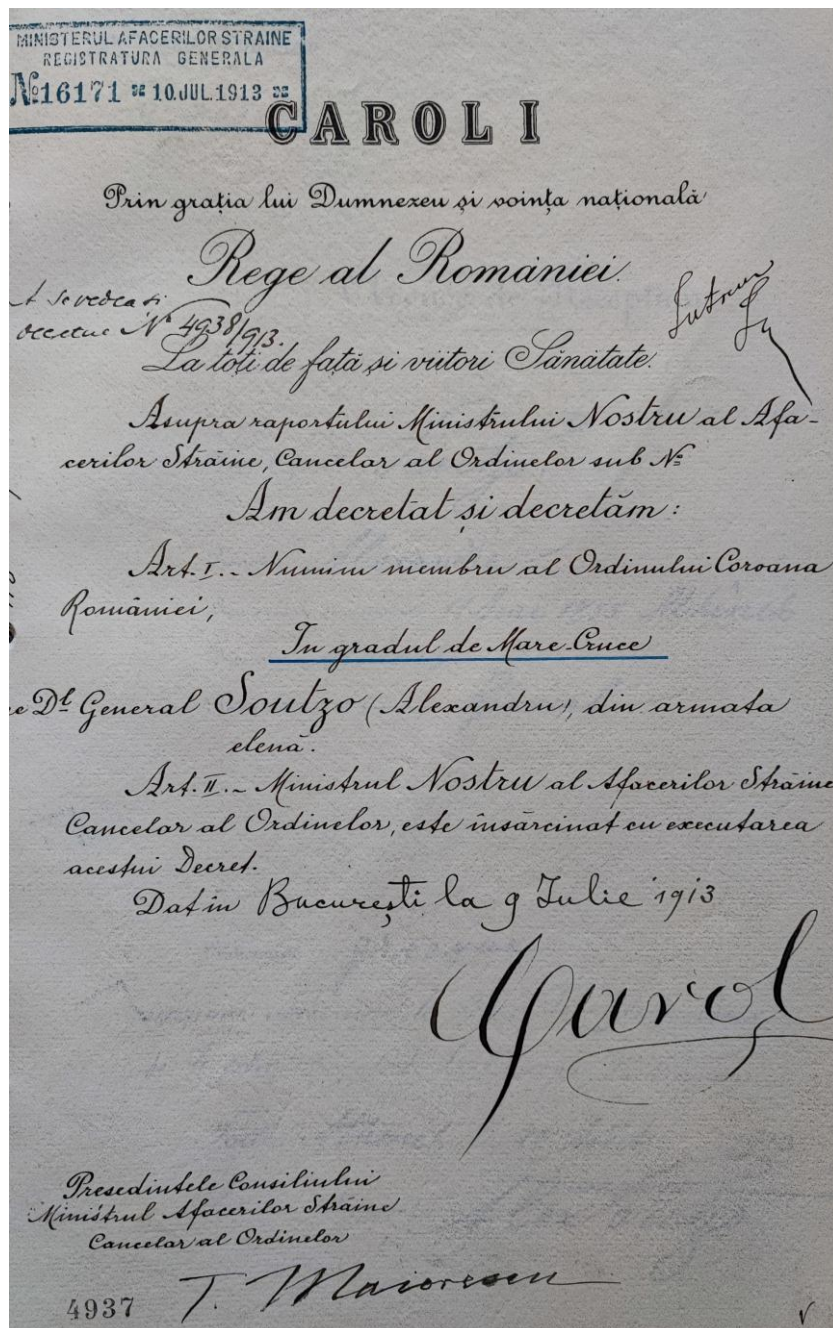 MINISTERUL AFACERILOR STRAINE
REGISTRATURA GENERALA
№16171 10.JUL.1913
CAROL I
Prin grația lui Dumnezeu și voința națională
Rege al României.
A se vedea și
No 4938/913.
La toți de față și viitori Sănătate.
Asupra raportului Ministrului Nostru al Afa-
cerilor Străine, Cancelar al Ordinelor sub No
Am decretat și decretăm:
Art. I. - Numim membru al Ordinului Coroana
României,
In gradul de Mare-Cruce
Dl General Soutzo (Alexandru), din armata
elenă.
Art. II. - Ministrul Nostru al Afacerilor Străine
Cancelar al Ordinelor, este însărcinat cu executarea
acestui Decret.
Dat în București la 9 Iulie 1913
Carol
Presedintele Consiliului
Ministrul Afacerilor Străine
Cancelar al Ordinelor
T. Maiorescu
4937